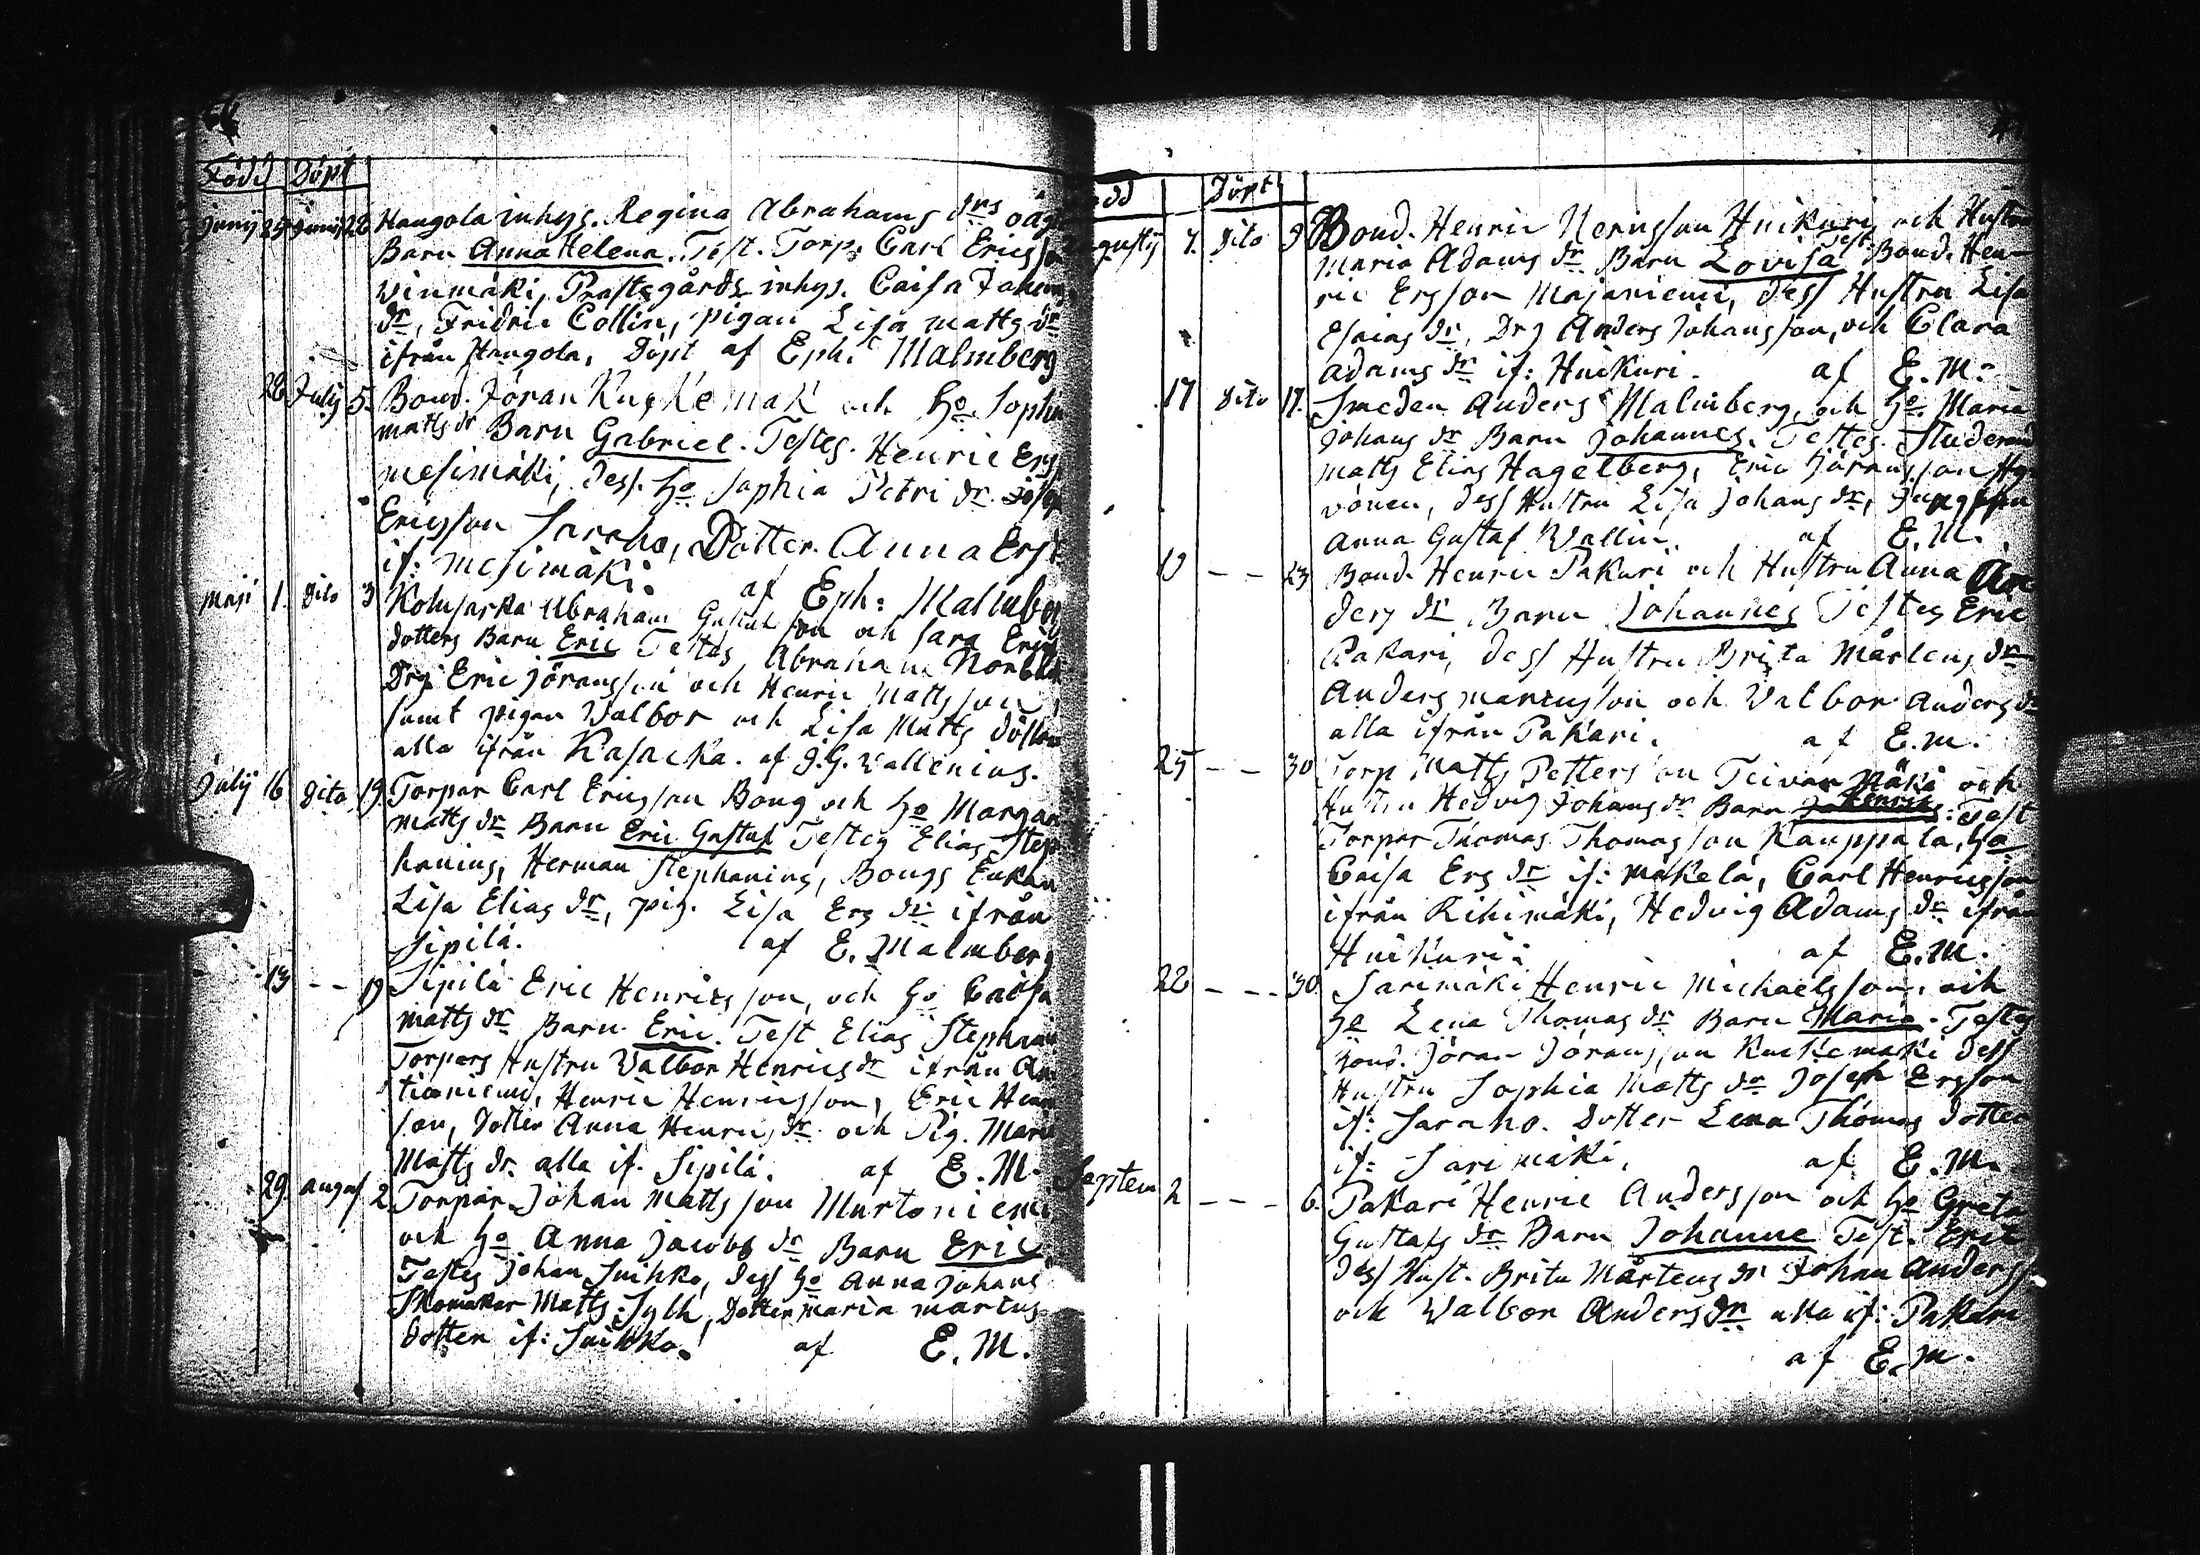 Född Döpt
Junij 25 Junij 28 Hangola inhys. Regina Abrahams drs oägt
Barn Anna Helena. Test. Torp. Carl Ericsson
Winmäki, Prästgårds inhys. Caisa Johans
dr, Fridric Collin, pigan Lisa Matts dr
ifrån Hangola, Döpt af Eph: Malmberg
28 July 5. Bond. Jöran Kuckemäk och Ho. Sophia
Matts dr Barn Gabriel. Testes. Henric Ers
Mesimäki, Dess. Ho Sophia Petri dr Josep
Ericsson Saraho, Dotter. Anna Ers dr
if: Mesimäki. af Eph: Malmberg
Maji 1. Dito 3 Abraham Gustafsson och Sara Erics
dotters Barn Eric Testes Abraham
Drg: Eric Jöransson och Henric Mattsson
samt pigan Walbor och Lisa Matts dötter
alla ifrån Kasacka. af J. G. Wallenius.
July 16 Dito 19 Torpar Carl Ericsson Boug och Ho Margar
Matts dr Barn Eric Gustaf Testes Elias Step
hanius, Herman Stephanius, Bougs Enkan
Lisa Elias dr, pig. Lisa Ers dr ifrån
Sipilä. af E. Malmberg
13 - - 19 Sipilä Eric Henricsson, och Ho Caisa
Matts dr Barn Eric. Test Elias Stephani
Torpars Hustru Walbor Henrics dr ifrån An
tioniemi, Henric Henricsson, Eric Henr
son, Dotter Anna Henrics dr och Pig. Maria
Matts dr. alla if. Sipilä. af E. M.
29. August 2 Torpar Johan Mattsson Murtoniemi
och Ho Anna Jacobs dr Barn Eric
Testes Johan Suihko, Dess Ho Anna Johans
Skomakar Matts Sylh, Dotter Maria Martens
dotter if: Suihko. af E. M.
Född Döpt
Augustij 7. Dito 9 Bond. Henric Henricsson Huikuri och Hustru
Maria Adams dr Barn Lovisa Test. Bond. Hen
ric Ersson Majaniemi, Dess Hustru Lisa
Esaias dr, Drg Anders Johansson, och Clara
Adams dr if: Huikuri. af E. M.
17 Dito 17. Smeden Anders Malmberg, och Ho. Maria
Johans dr Barn Johannes. Testes. Studerand
Matts Elias Hagelberg, Eric Jöransson Hy
vönen, Dess Hustru Lisa Johans dr, Jungfru
Anna Gustaf Wallin. af E. M.
19 - - 23 Bond. Henric Pakari och Hustru Anna An
ders dr Barn Johannes Testes Eric
Pakari, Dess Hustru Brita Mårtens dr
Anders Marcusson och Valbor Anders dr
alla ifrån Pakari. af E. M.
25 - - 30 Torp Matts Pettersson Teivanmäki och
Hustru Hedvig Johans dr Barn Henric. Test
Torpar Thomas Thomasson Kauppala, Ho
Caisa Ers dr if: Mäkelä, Carl Henricsson
ifrån Kihimäki, Hedvig Adams dr ifrån
Huikuri. af E. M.
22 - - 30 Sarimäki Henric Michaelsson, och
Ho Lena Thomas dr Barn Maria. Testes
Bond. Jöran Jöransson Kuckemäki Dess
Hustru Sophia Matts dr Joseph Ersson
if: Saraho. Dotter Lena Thomas Dotter
if: Sarimäki. af E. M.
Septem 2 - - - 6. Pakari Henric Andersson och Ho Greta
Gustafs dr Barn Johanne Test. Eric
Dess Hust. Brita Mårtens dr Johan Anders
och Walbor Anders dr alla if: Pakari
af E. M.